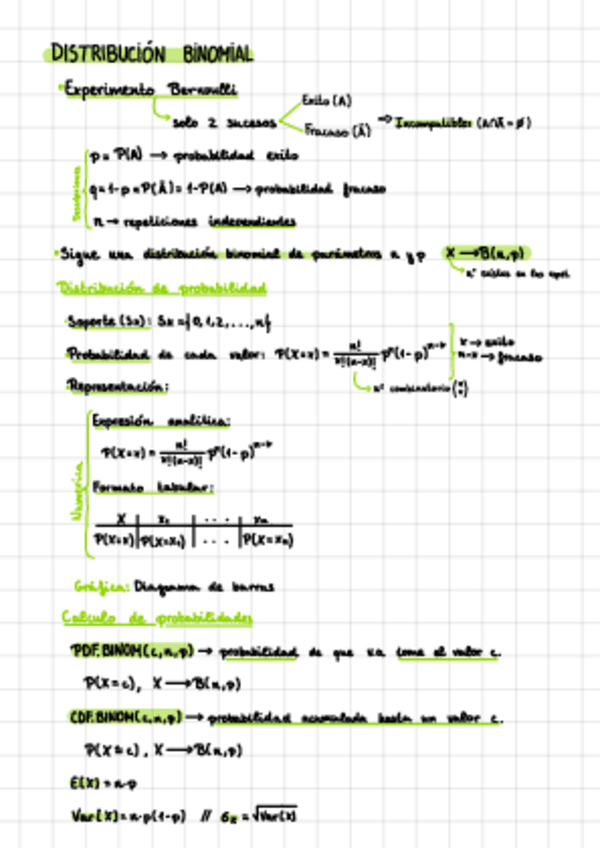 DISTRIBUCIÓN BINOMIAL
Experimento Bernoulli
solo 2 sucesos
Exito (A)
Fracaso (Ā)
=> Incompatibles (A∩Ā = ø)
p = P(A) → probabilidad exito
q = 1-p = P(Ā) = 1-P(A) → probabilidad fracaso
n → repeticiones independientes
Sigue una distribución binomial de parámetros n y p
X → B(n,p)
nº exitos en las
Distribución de probabilidad
Soporte (Sx): Sx = {0,1,2,...,n}
Probabilidad de cada valor: P(X=x) = n!/x!(n-x)! pˣ(1-p)ⁿ⁻ˣ
x → exito
n-x → fracaso
nº combinatorio (n x)
Representación:
Numérica
Expresión analítica:
P(X=x) = n!/x!(n-x)! pˣ(1-p)ⁿ⁻ˣ
Formato tabular:
X | x₁ | ... | xₙ
P(X=x) | P(X=x₁) | ... | P(X=xₙ)
Gráfica: Diagrama de barras
Calculo de probabilidades
PDF.BINOM(c,n,p) → probabilidad de que v.a. tome el valor c.
P(X=c), X → B(n,p)
CDF.BINOM(c,n,p) → probabilidad acumulada hasta un valor c.
P(X≤c), X → B(n,p)
E(X) = n·p
Var(X) = n·p(1-p) // σx = √Var(X)